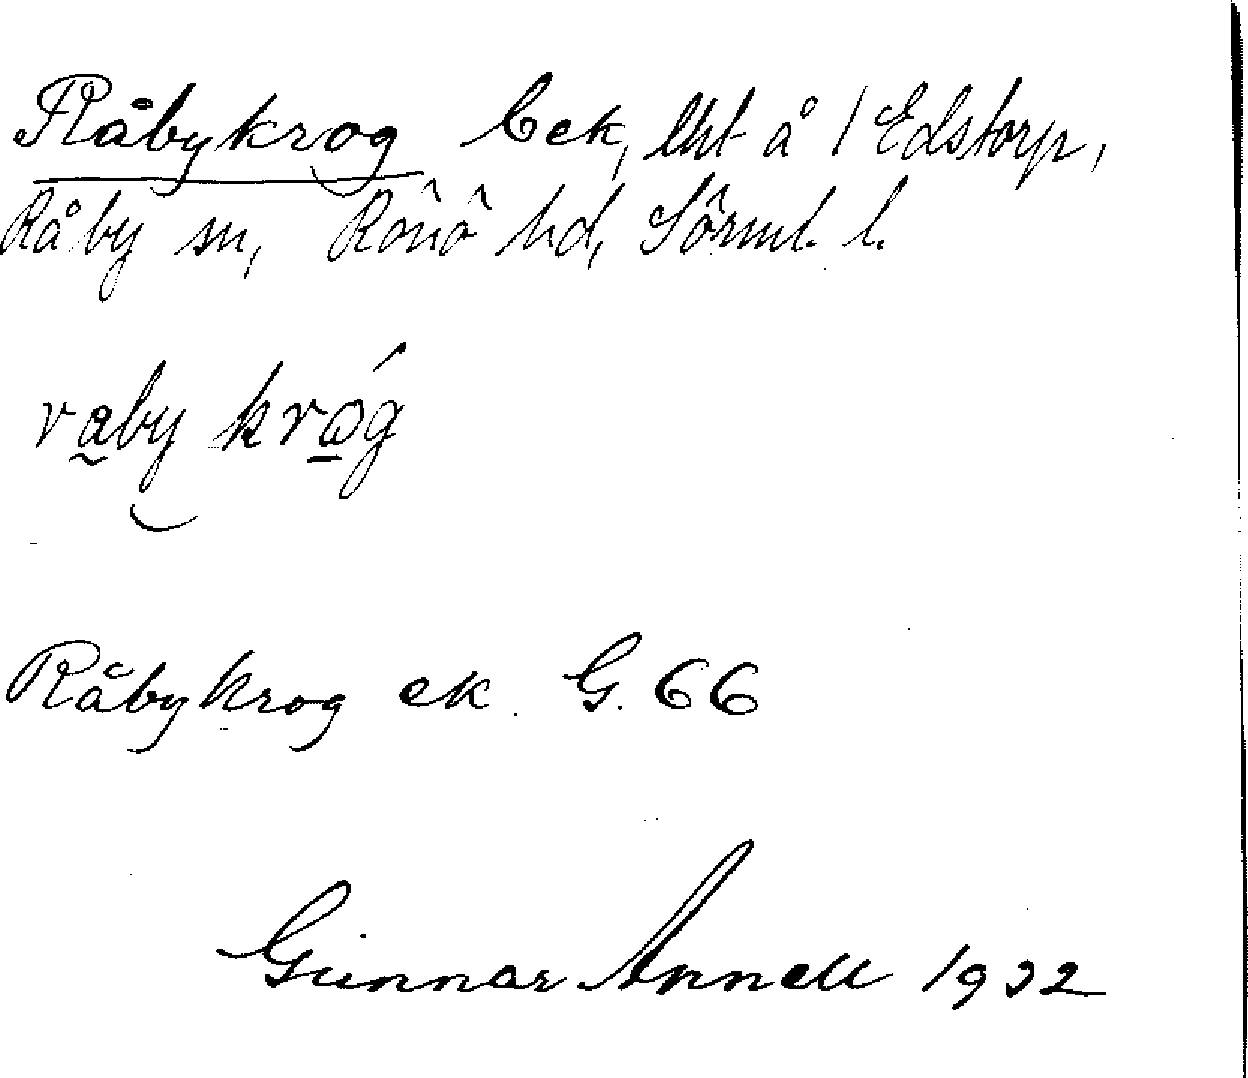 Råbykrog bek, lht å 1 Edstorp,
Råby sn, Rönö hd, Sörml. l.
råby króg
Råbykrog ek G. 66
Gunnar Annell 1932